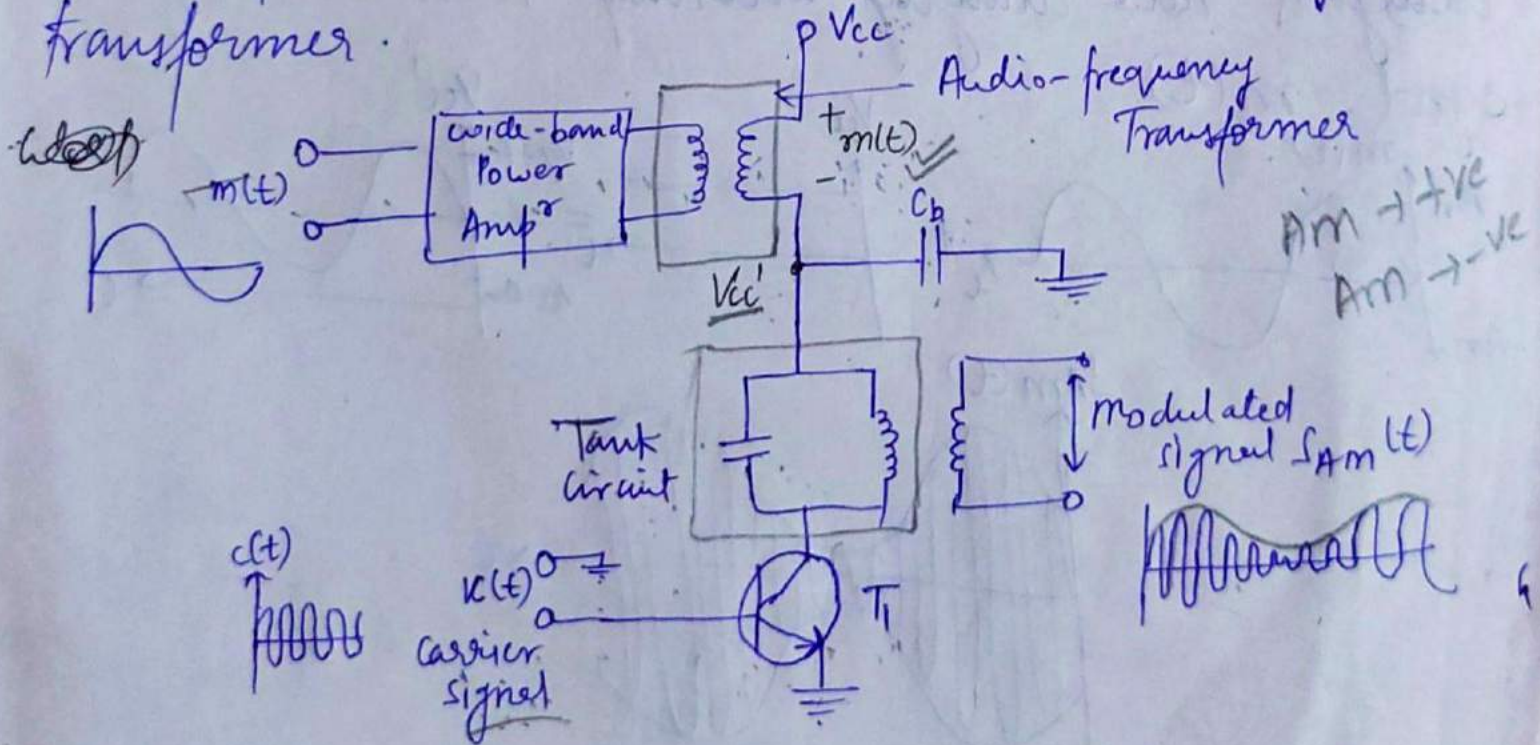 transformer.
Vcc
Audio-frequency
Transformer
wide-band
Power
Ampr
m(t)
+
m(t)
-
Cb
Am → +ve
Am → -ve
Vcc'
Tank
circuit
Modulated
signal SAM(t)
c(t)
c(t)
carrier
signal
T1